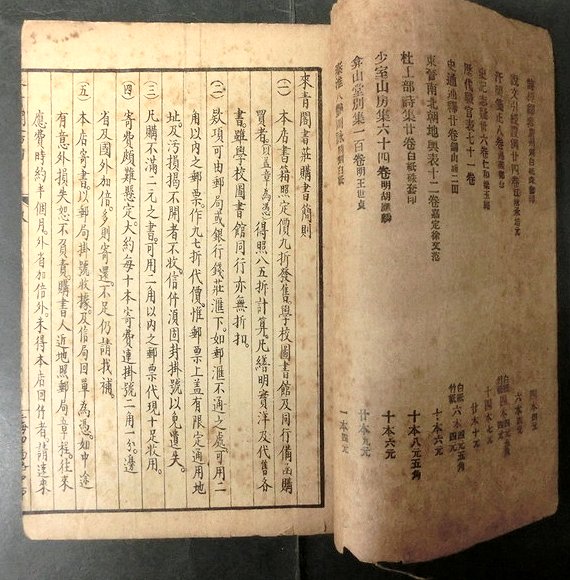 說文引經證異廿四卷
汗簡箋正八卷
史記志疑卅六卷
歷代職官表七十一卷 廿本十元
史通通釋廿卷 錫山浦二田
東晉南北朝地輿表十二卷 嘉定徐文范 十本六元
杜工部詩集廿卷 白紙硃套印 十本八元五角
少室山房集六十四卷 明胡應麟 十本六元
弇山堂別集一百卷 明王世貞 廿本九元
秦淮八艷圖詠 一本四元
來青閣書莊購書簡則
(一) 本店書籍照定價九折發售學校圖書館及同行備函購
買者(可蓋章為憑)得照八五折計算。凡繕明實洋及代售各
書雖學校圖書館同行亦無折扣。
(二) 款項可由郵局或銀行錢莊滙下。如郵滙不通之處。可用二
角以內之郵票。作九七折代價。惟郵票上蓋有限定適用地
址及污損揭不開者不收。信件須固封掛號以免遺失。
(三) 凡購不滿一元之書。可用一角以內之郵票代現十足收用。
(四) 寄費頗難懸定大約每十本寄費連掛號一角一分。邊
省及國外加倍多則寄還。不足仍請找補。
(五) 本店寄書。以郵局掛號收據。及信局回單為憑。如中途
有意外損失恕不負責。購書人近地照郵局章程。往來
應費時約半個月。外省加倍。外。未得本店回件者。請速來